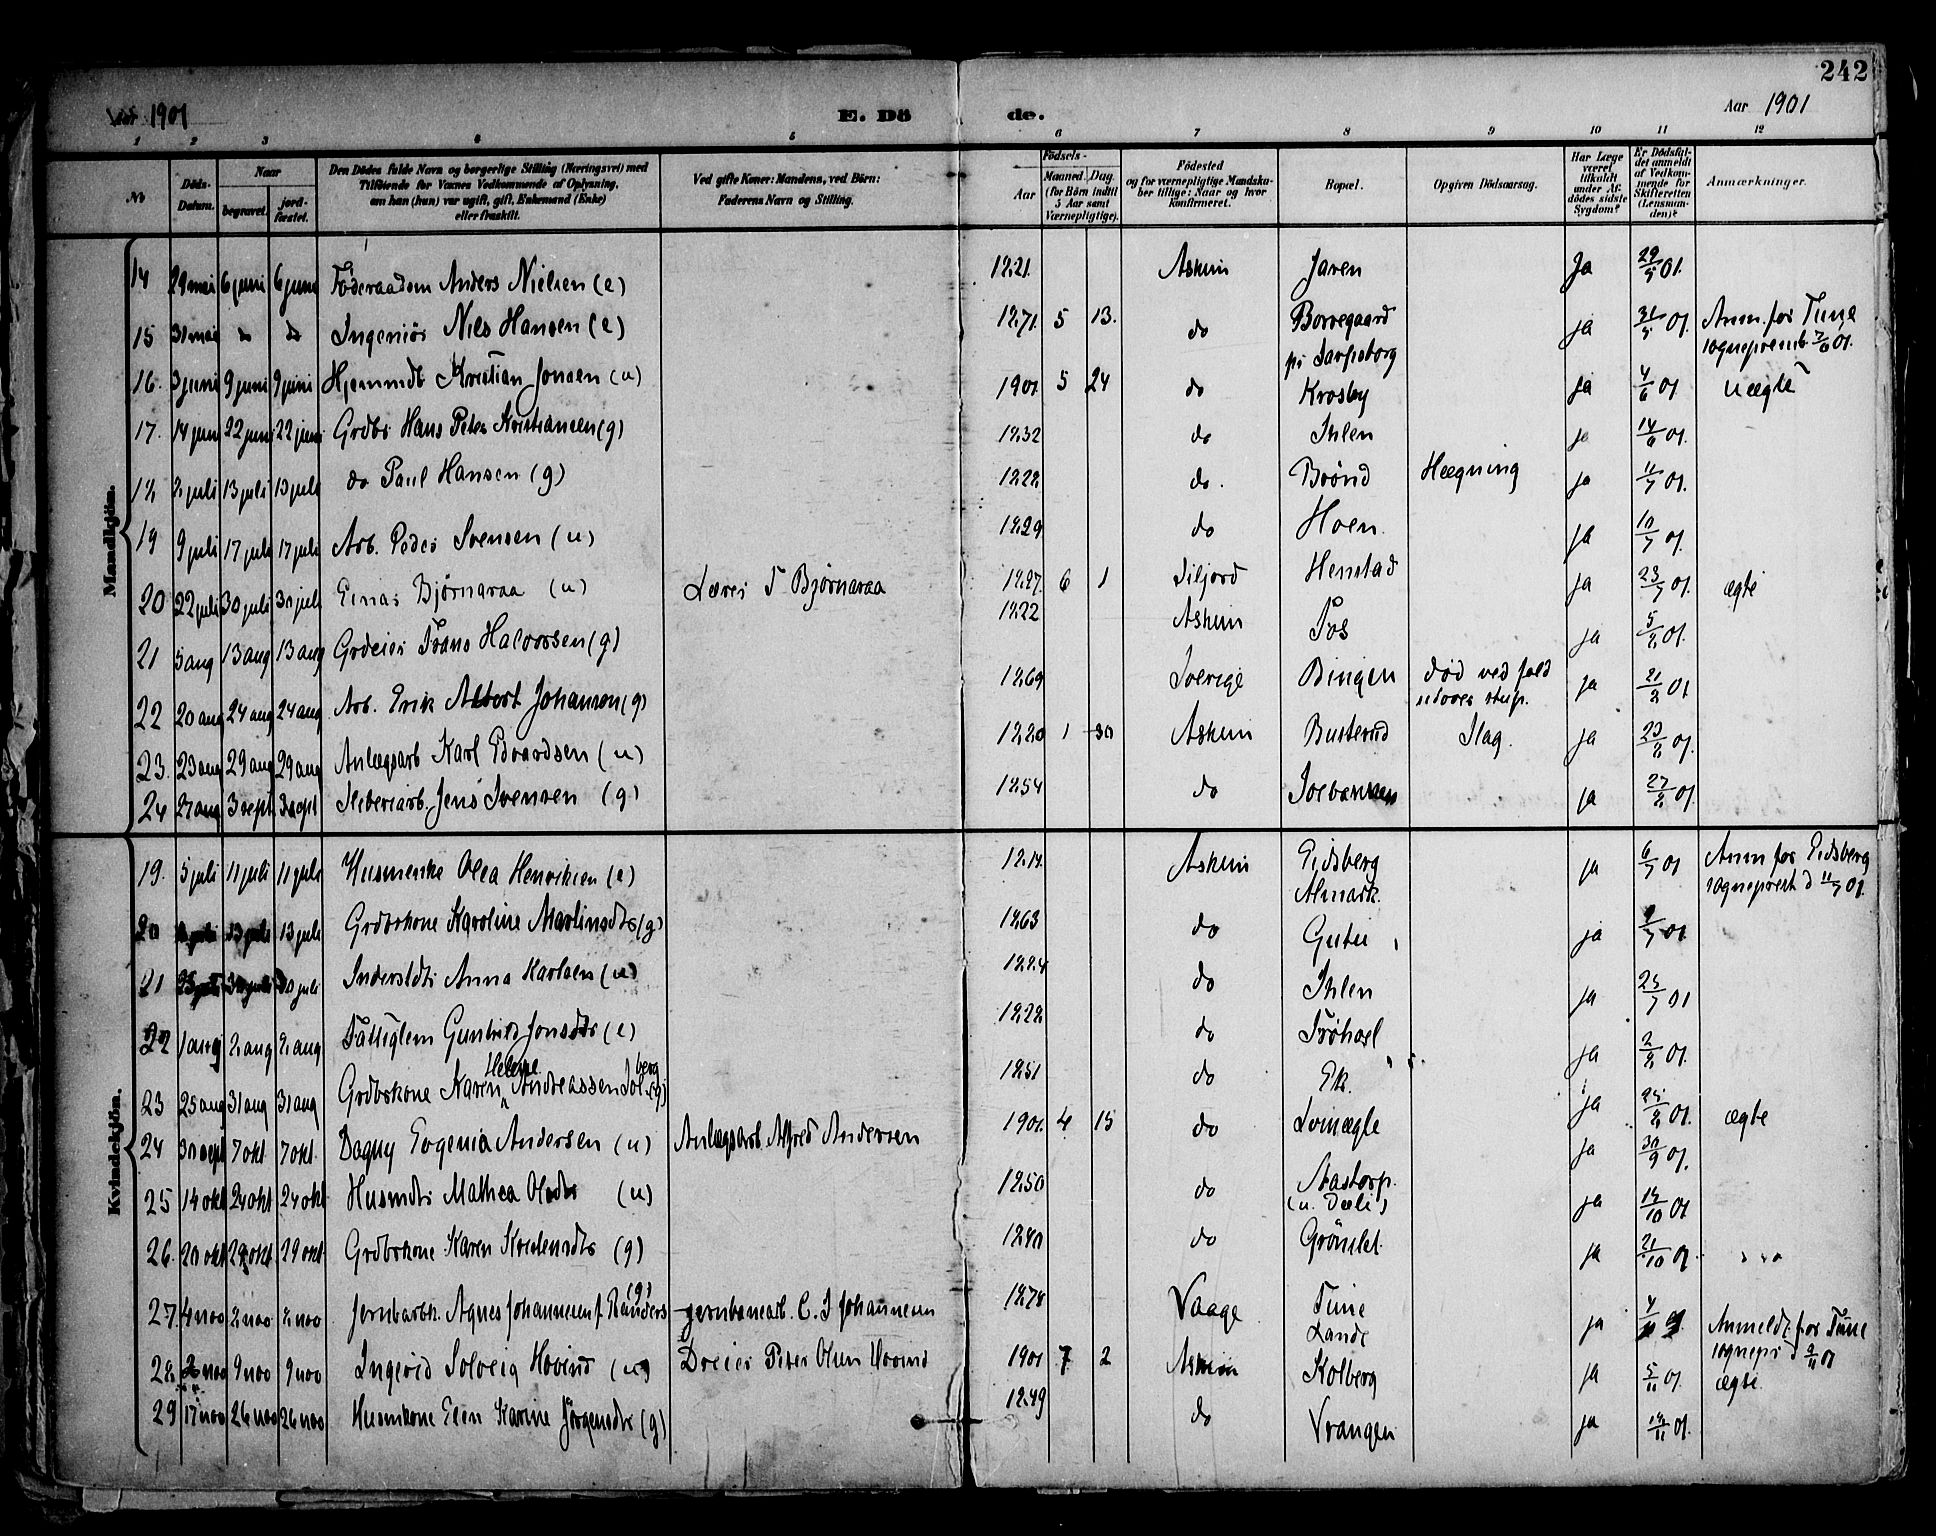 242
Aar 1901 E. Dö de. Aar 1901
1 2 3 4 5 6 7 8 9 10 11 12
No
Döds-Datum.
Naar
begravet. jord-fæstet.
Den Dödes fulde Navn og borgerlige Stilling (Næringsvei) med
Tilföiende for Voxnes Vedkommende af Oplysning,
om han (hun) var ugift, gift, Enkemand (Enke)
eller fraskilt.
Ved gifte Koner: Mandens, ved Börn:
Faderens Navn og Stilling.
Födsels-
Aar Maaned. Dag.
(for Börn indtil
5 Aar samt
Værnepligtige).
Födested
og for værnepligtige Mandska-
ber tillige: Naar og hvor
konfirmeret.
Bopæl.
Opgiven Dödsaarsag.
Har Læge
været
tilkaldt
under Af-
dödes sidste
Sygdom?
Er Dödsfal-
det anmeldt
af Vedkom-
mende for
Skifteretten
(Lensman-
den)?
Anmærkninger.
Mandkjön.
14 29 mai 6 juni 6 juni Föderaadsm Anders Nielsen (e) 1821 Askim Jaren Ja 29/5 01.
15 31 mai do do Ingeniör Nils Hansen (e) 1871 5 13. do Borregaard ja 31/5 01. Anm. for Tune
på Sarpsborg sogneprest 3/6 01.
16. 3 juni 9 juni 9 juni Kristian Jonsen (u) 1901 5 24 do Krosby ja 4/6 01 uægte
17. 14 juni 22 juni 22 juni Grdbr Hans Peter Kristiansen (g) 1832 do Ihlen ja 14/6 01.
18 2 juli 13 juli 13 juli do Paul Hansen (g) 1828 do. Brönd Hægning ja 01.
19 9 juli 17 juli 17 juli Arb. Peder Svensen (u) 1829 do Hoen. ja 10/7 01.
20 22 juli 30 juli 30 juli Einar Björnaraa (u) Lærer T Björnaraa 1887. 6 1 Siljord Henstad ja 23/7 01. ægte
21 5 aug 13 aug 13 aug Grdeier Frans Halvorsen (g) 1822 Askim Fos ja 5/8 01.
22 20 aug 24 aug 24 aug Arb. Erik Albert Johansen (g) 1869 Sverige Bingen död ved fald ja 21/8 01
udover stup.
23. 23 aug 29 aug 29 aug Anlægsarb Karl Edvardsen (u) 1880 1 30 Askim Busterud Slag. ja 23/8 01.
24 27 aug 3 sept 3 sept Sliberiarb. Jens Svensen (g) 1854 do ja 27/8 01.
Kvindekjön.
19. 5 juli 11 juli 11 juli Husmenke Olea Henriksen (e) 1814. Askim Eidsberg ja 6/7 01 Anm for Eidsberg
Almark. sogneprest d 11/7 01.
20 13 juli 13 juli Grdbrkone Karoline Martinsdtr (g) 1863 do Gutu ja 01
21 30 juli 30 juli Inderstdtr Anna Karlsen (u) 1884 do Ihlen ja 25/7 01
22 1 aug 2 aug 2 aug Fattiglem Gunhild Jonsdtr (e) 1822 do Fröhael ja 2/8 01.
23 25 aug 31 aug 31 aug Grdbrkone Karen Helene Andreassen Solberg (g) 1851 do Ek. ja 25/8 01.
24 30 sept 7 okt. 7 okt. Dagny Eugenia Andersen (u) Anlægsarb. Alfred Andersen 1901. 4 15 do ja 30/9 01. ægte
25 14 okt 24 okt 24 okt Husmdtr Mathea Olsdtr (u) 1850 do Aastorp. ja 14/10 01
(u. Dæli)
26. 20 okt 29 okt. 29 okt Grdbrkone Karen (g) 1840 do Grönslet. ja 21/10 01.
27. 4 nov 2 nov 2 nov Agnes Johannesen f. Randers (g) jernbanearb. C. J Johannesen 1878 Vaage Tune ja Anmeldt for Tune
Lande sognepr d 01
28. 2 nov 9 nov 9 nov Ingerid Solveig Hovind (u) Dreier Peter Olsen Hovind 1901 7 2 Askim Kolberg ja 5/11 01. ægte.
29 17 nov 26 nov 26 nov Husmkone Elen Karine Jörgensdtr (g) 1849 do Vrangen ja 18/11 01.